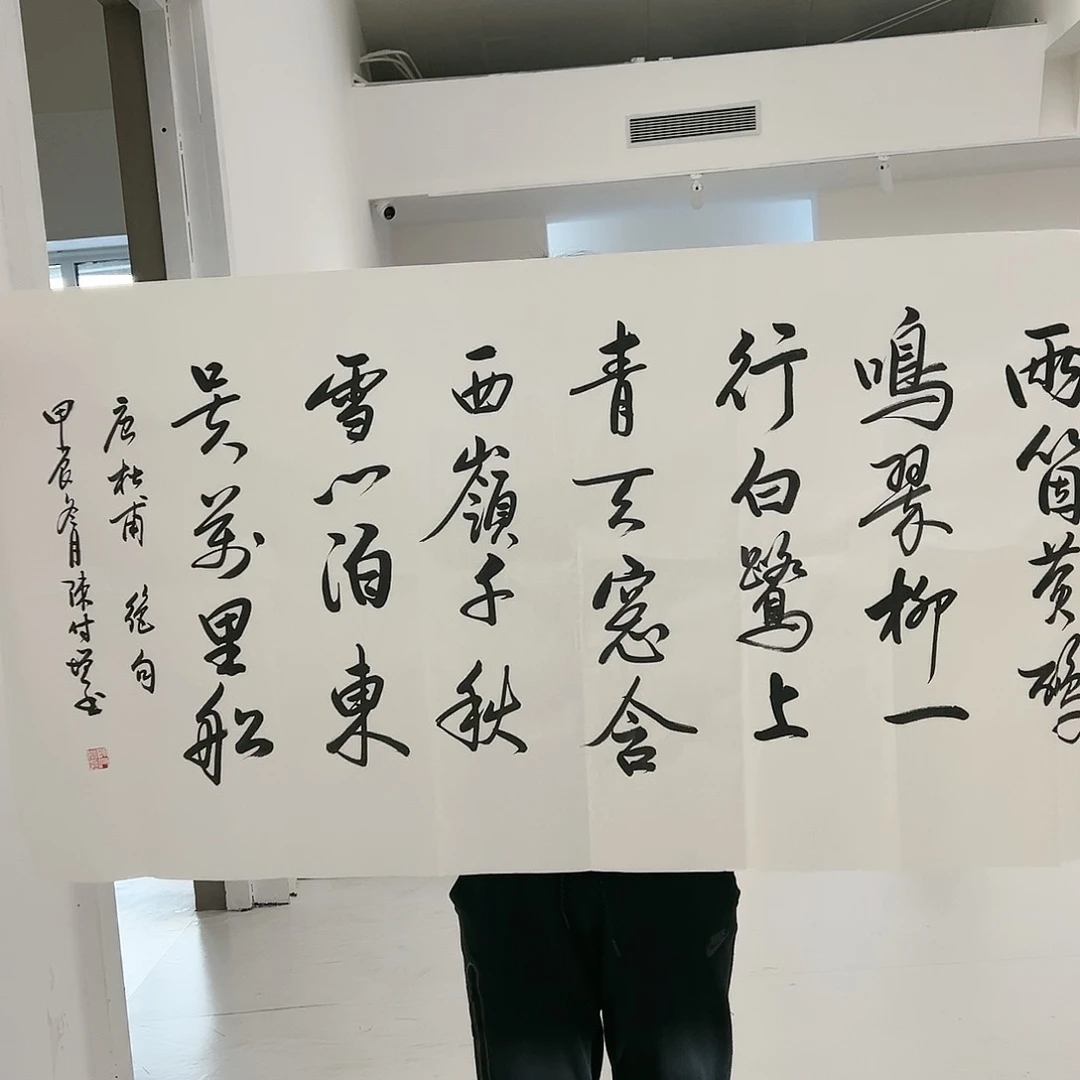 兩箇黃鸝
鳴翠柳一
行白鷺上
青天窓含
西嶺千秋
雪门泊東
吴萬里船
唐杜甫 絕句
甲辰冬月陳付